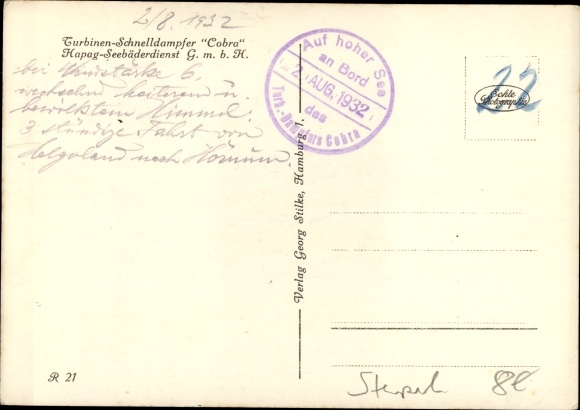 2/8. 1932
Turbinen-Schnelldampfer "Cobra"
Hapag-Seebäderdienst G. m. b. H.
bei Windstärke 6,
wechselnd heiterem u.
bewölktem Himmel.
3 stündige Fahrt von
Helgoland nach Hörnum.
Auf hoher See
an Bord
2. AUG. 1932
des
Turb.-Dampfers Cobra
22
Echte
Photographie
Verlag Georg Stilke, Hamburg 1.
R 21
8€